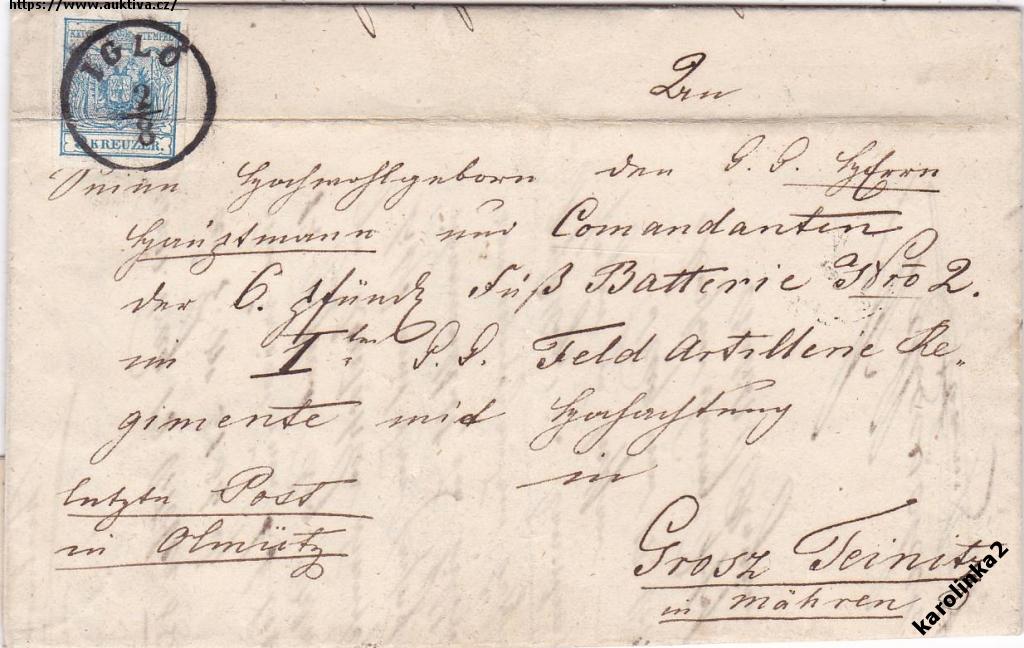 https://www.auktiva.cz/
IGLÓ
2/8
9 KREUZER.
Seine Hochwohlgeborn den Herrn
Hauptmann und Comandanten
der 6. Pfünd Fuß Batterie Nro 2.
im Iten Feld Artillerie Re-
gimente mit Hochachtung
in
letzte Post
in Olmütz
Grosz Teinitz
in Mähren
karolinka2